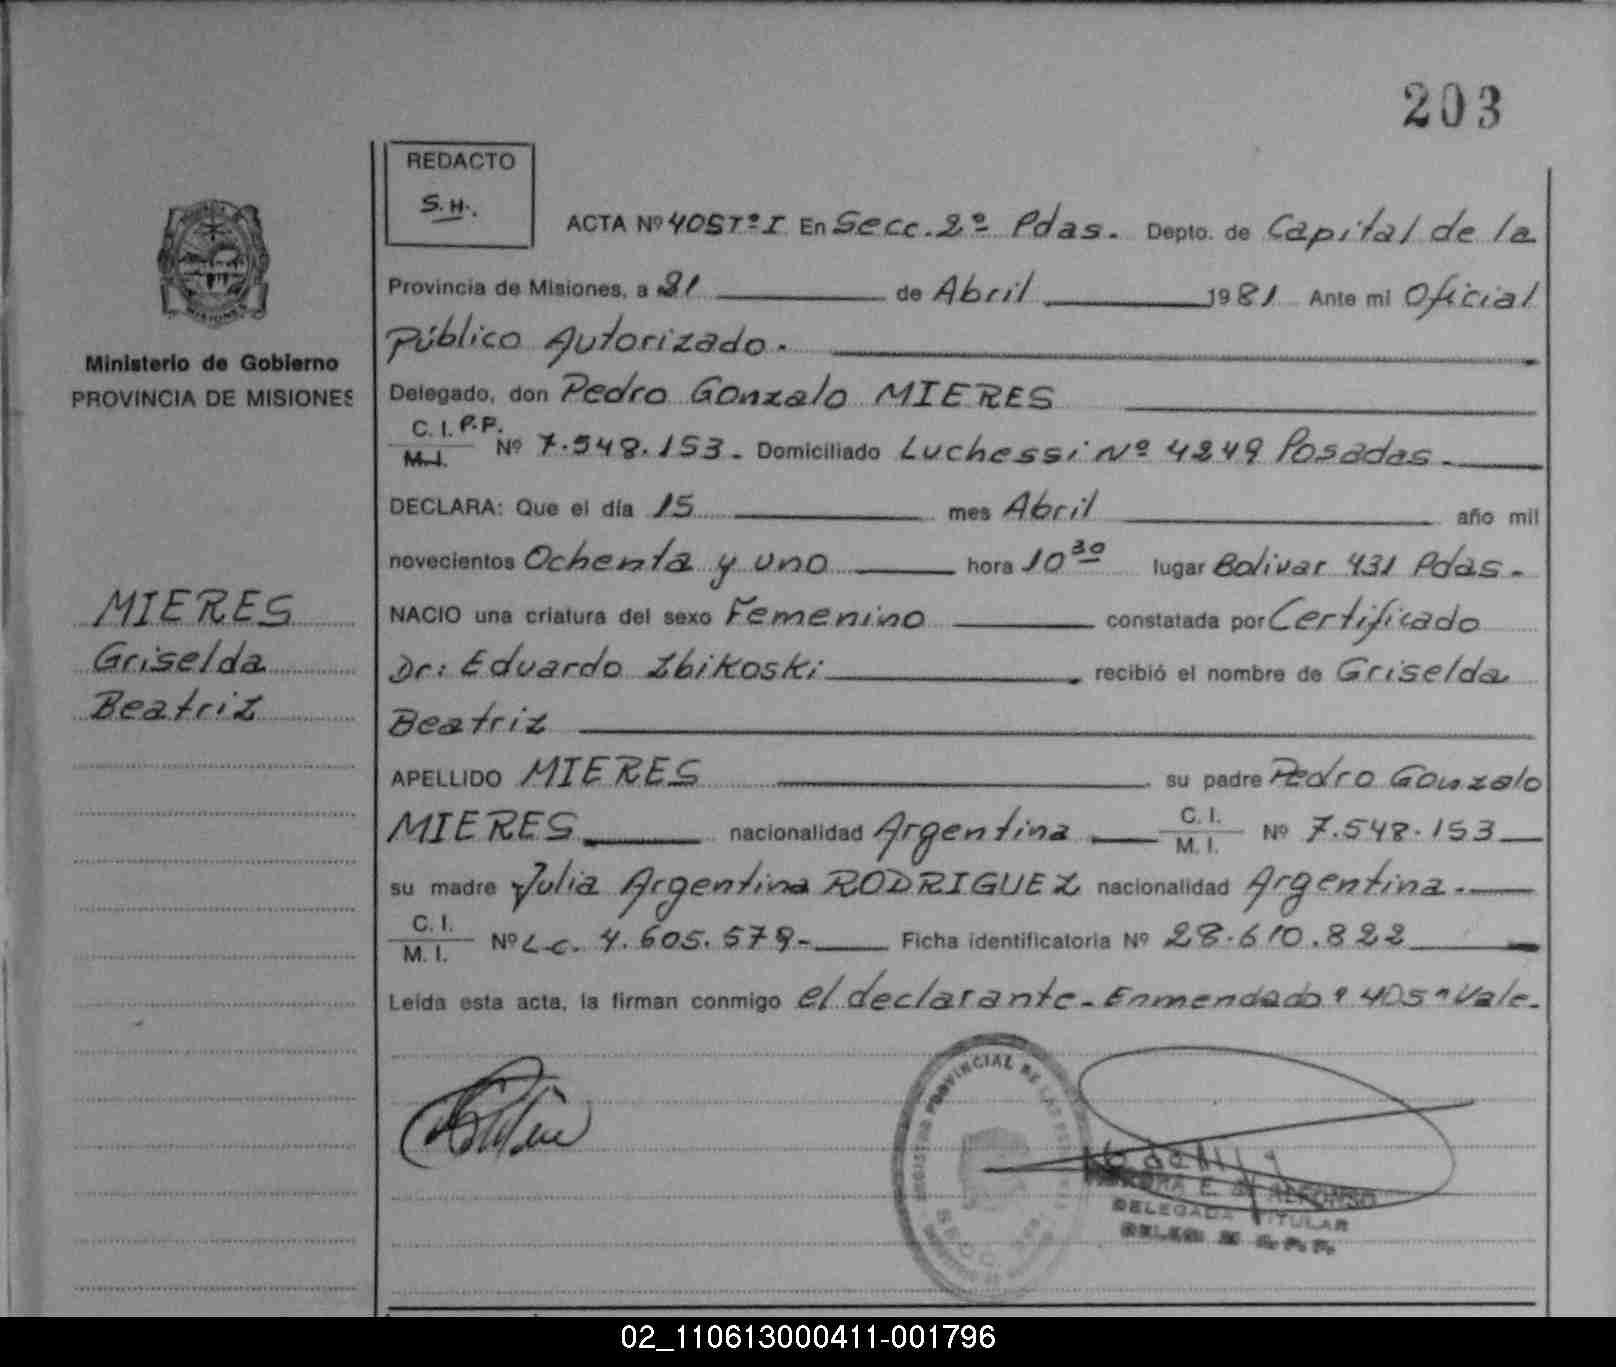 203
REDACTO
S.H.
ACTA Nº 405Tº I En Secc. 2º Pdas. Depto. de Capital de la
Provincia de Misiones, a 21 de Abril 1981 Ante mi Oficial
Público Autorizado.
Ministerio de Gobierno
PROVINCIA DE MISIONES
Delegado, don Pedro Gonzalo MIERES
C. I. P.P.
M.I. Nº 7.548.153. Domiciliado Luchessi Nº 4249 Posadas.
DECLARA: Que el día 15 mes Abril año mil
novecientos Ochenta y uno hora 10 30 lugar Bolivar 431 Pdas.
MIERES
Griselda
Beatriz
NACIO una criatura del sexo Femenino constatada por Certificado
Dr: Eduardo Zbikoski. recibió el nombre de Griselda
Beatriz
APELLIDO MIERES su padre Pedro Gonzalo
MIERES nacionalidad Argentina C. I. M. I. Nº 7.548.153
su madre Julia Argentina RODRIGUEZ nacionalidad Argentina.
C. I. M. I. Nº L.C. 4.605.579- Ficha identificatoria Nº 28.610.822
Leída esta acta, la firman conmigo el declarante- Enmendado "405" Vale.
REGISTRO PROVINCIAL DE LAS PERSONAS
SECC.
E. D. ALFONSO
DELEGADA TITULAR
02_110613000411-001796